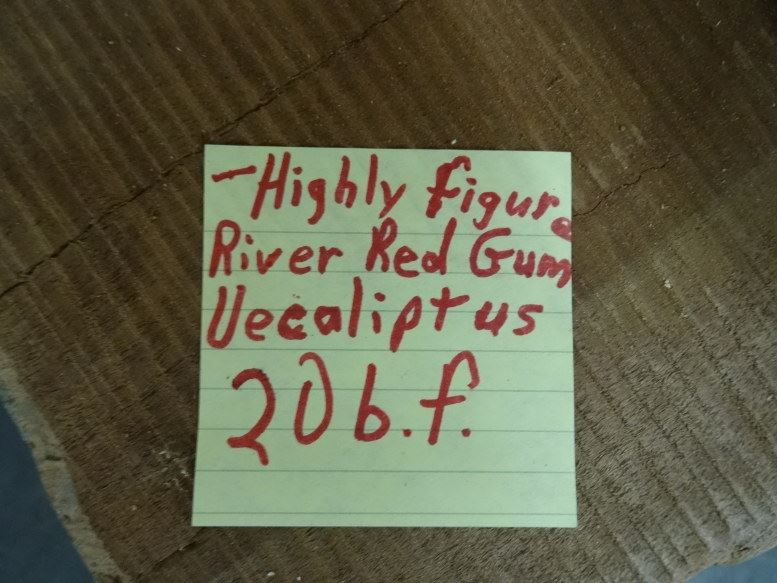 -Highly figure
River Red Gum
Uecaliptus
20 b.f.